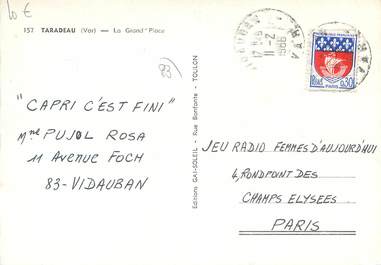 10 €
157 TARADEAU (Var) — La Grand'Place
(83)
"CAPRI C'EST FINI"
Mme PUJOL ROSA
11 AVENUE FOCH
83-VIDAUBAN
Editions GAI-SOLEIL - Rue Bonfante - TOULON
VAR
11-2
1966
PARIS
0,30
JEU RADIO FEMMES D'AUJOURD'HUI
4, RONDPOINT DES
CHAMPS ELYSEES
PARIS